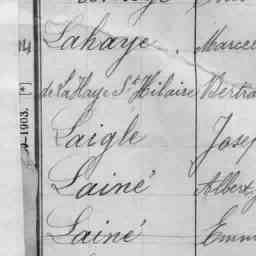 Lahaye. Marcel
de La Haye St Hilaire Bertra
Laigle Josep
Lainé Albert
Lainé Emm
-1903. [*]